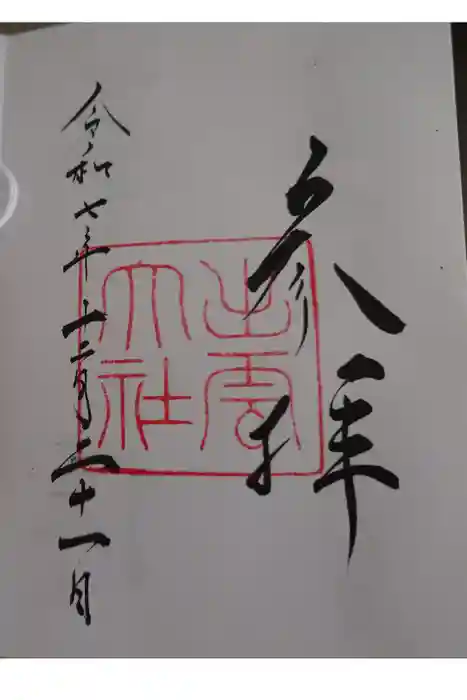 参拝
出雲
大社
令和七年十二月二十一日